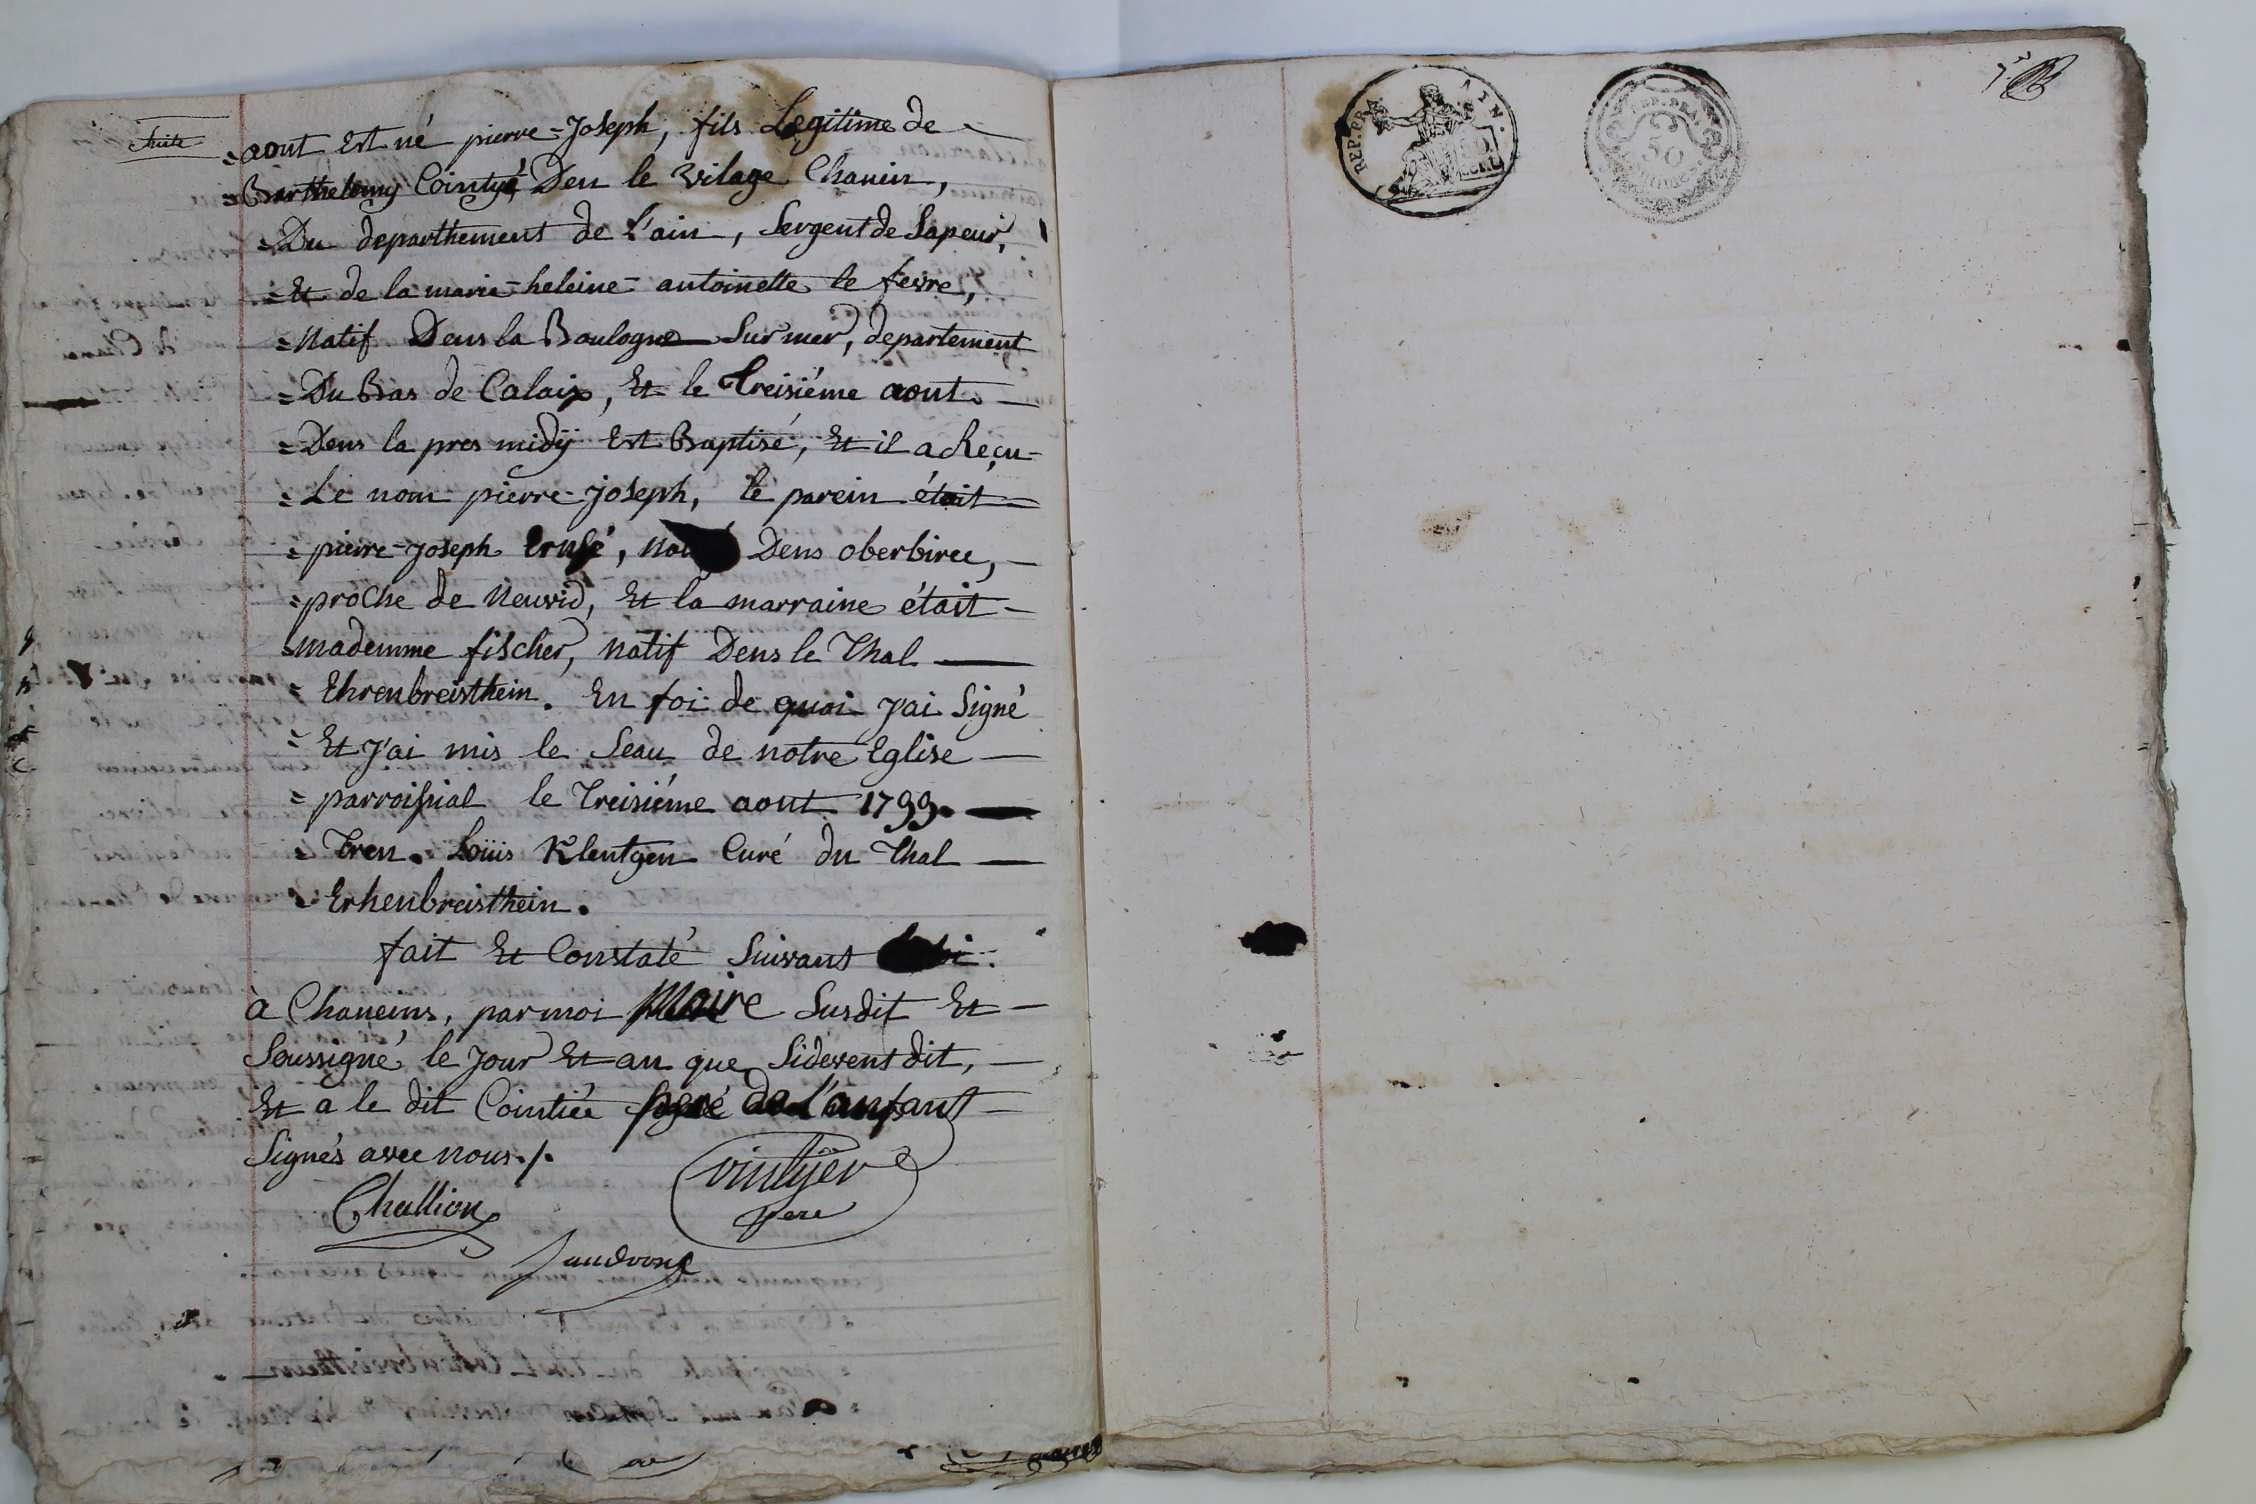 Suite
= aout Est né pierre=Joseph, fils Legitime de
= Barthelemy Cointyé Den le vilage Chanein,
= Du departhement de l'ain, Sergent de Sapeur,
= Et de la marie-heleine-antoinette le fevre,
= Natif Dens la Boulogne Sur mer, departement
= Du Bas de Calaix, Et le treisiéme aout.
= Dens la pres midÿ Est Baptisé, Et il a Reçu
= Le nom pierre-joseph, le parein était
= pierre-joseph Dens oberbiree,
= proche de Neuvid, Et la marraine était
= mademme fischer, natif Dens le Thal
= Ehrenbreisthein. En foi de quoi J'ai Signé
= Et J'ai mis le Seau de notre Eglise
= parroissial le Treisiéme aout 1799.
= Tren. Loüis Klentgen Curé du Thal
= Erhenbreisthein.
fait Et Constaté Suivans
à Chaneins, par moi Maire Susdit Et
Soussigné le Jour Et an que Sidevent dit,
Et a le dit Cointiée pere de l'anfant
Signés avec nous./.
Cointyer
pere
Challion
REP. FRA.
50